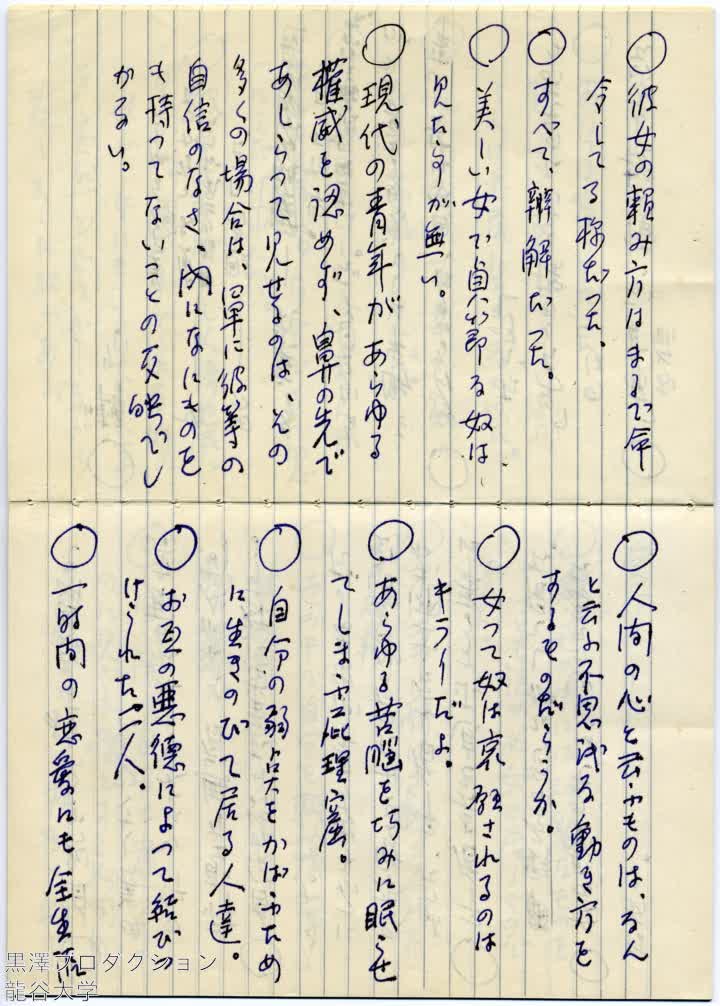 ○彼女の頼み方はまるで命
令してる様だった。
○すべて、辯解だった。
○美しい女で貞節な奴は
見たことが無い。
○現代の青年があらゆる
権威を認めず、鼻の先で
あしらって見せるのは、その
多くの場合は、単に彼等の
自信のなさ、内になにものを
も持ってないことの反映でし
かない。
○人間の心と云ふものは、なん
と云ふ不思議な動き方を
するものだらうか。
○女って奴は哀願されるのは
キライだよ。
○あらゆる苦脳を巧みに眠らせ
てしまふ屁理窟。
○自分の弱点をかばふため
に生きのびて居る人達。
○お互の悪徳によって結びつ
けられた二人。
○一時間の恋愛にも全生涯
黒澤プロダクション
龍谷大学